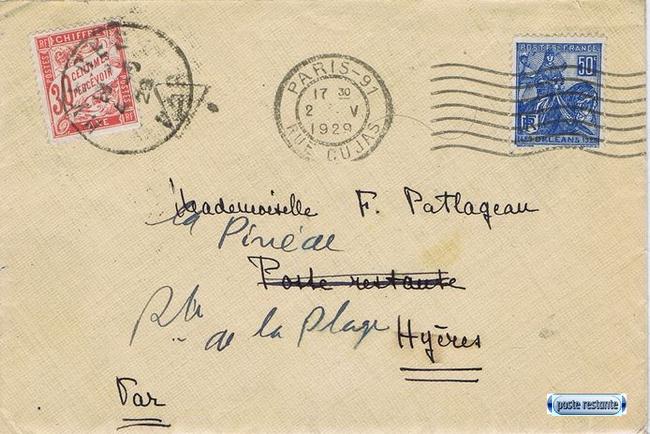 CHIFFRE
RF
RF
POSTES
30
CENTIMES
A PERCEVOIR
TAXE
PARIS-91
17 30
2 V
1929
RUE CUJAS
POSTES-FRANCE
50c
RF
ORLEANS
Mademoiselle F. Patlageau
la Pinéde
Poste restante
de la Plage
Hyères
Var
poste restante